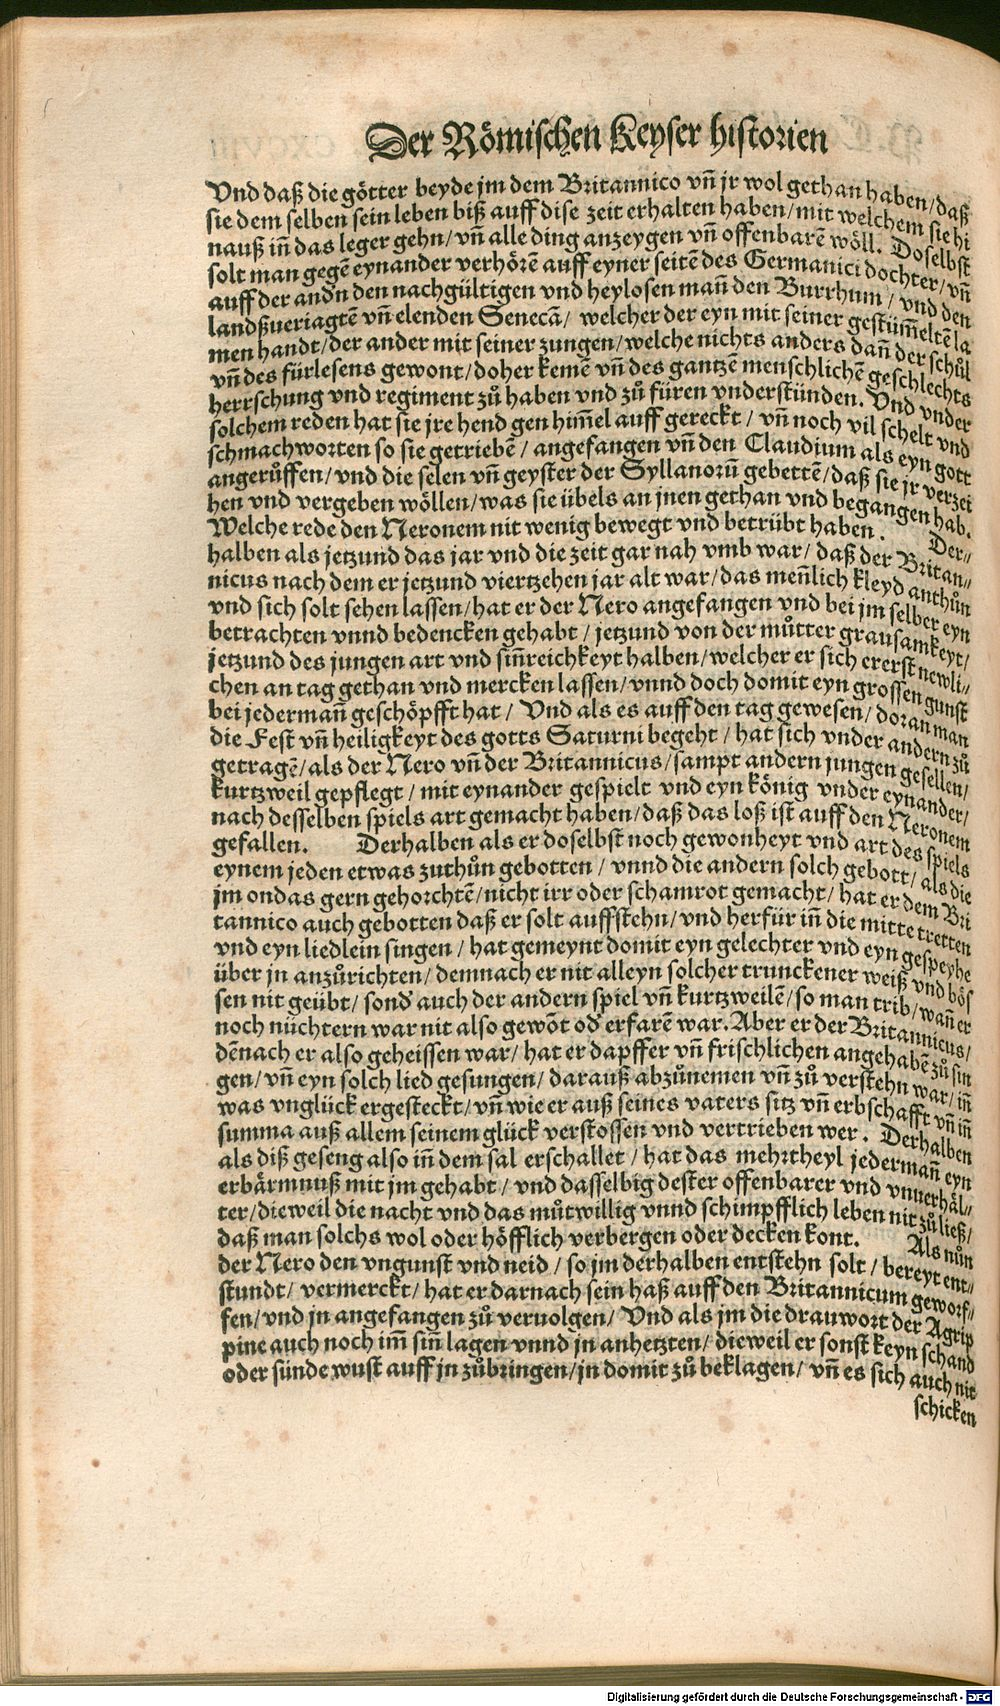 Der Römischen Keyser historien
Vnd daß die götter beyde jm dem Britannico vñ jr wol gethan haben/daß
sie dem selben sein leben biß auff dise zeit erhalten haben/mit welchem sie hi
nauß iñ das leger gehn/vñ alle ding anzeygen vñ offenbarẽ wöll. Doselbst
solt man gegẽ eynander verhörẽ auff eyner seitẽ des Germanici dochter/vñ
auff der andn den nachgültigen vnd heylosen mañ den Burrhum/vnd den
landßueriagtẽ vñ elenden Senecã/ welcher der eyn mit seiner gestüm̃eltẽ la
men handt/der ander mit seiner zungen/welche nichts anders dañ der schůl
vñ des fürlesens gewont/doher kemẽ vñ des gantzẽ menschlichẽ geschlechts
herrschung vnd regiment zů haben vnd zů füren vnderstünden. Vnd vnder
solchem reden hat sie jre hend gen him̃el auff gereckt/ vñ noch vil schelt vnd
schmachworten so sie getriebẽ/ angefangen vñ den Claudium als eyn gott
angerůffen/vnd die selen vñ geyster der Syllanorũ gebettẽ/daß sie jr verzei
hen vnd vergeben wöllen/was sie übels an jnen gethan vnd begangen hab.
Welche rede den Neronem nit wenig bewegt vnd betrübt haben. Der⸗
halben als jetzund das jar vnd die zeit gar nah vmb war/ daß der Britan⸗
nicus nach dem er jetzund viertzehen jar alt war/das meñlich kleyd anthůn
vnd sich solt sehen lassen/hat er der Nero angefangen vnd bei jm selber eyn
betrachten vnnd bedencken gehabt/ jetzund von der můtter grausamkeyt/
jetzund des jungen art vnd siñreichkeyt halben/welcher er sich ererst newli⸗
chen an tag gethan vnd mercken lassen/vnnd doch domit eyn grossen gunst
bei jedermañ geschöpfft hat/ Vnd als es auff den tag gewesen/ doran man
die Fest vñ heiligkeyt des gotts Saturni begeht/ hat sich vnder andern zů
getragẽ/als der Nero vñ der Britannicus/sampt andern jungen gesellen/
kurtzweil gepflegt/ mit eynander gespielt vnd eyn könig vnder eynander/
nach desselben spiels art gemacht haben/daß das loß ist auff den Neronem
gefallen. Derhalben als er doselbst noch gewonheyt vnd art des spiels
eynem jeden etwas zuthůn gebotten/ vnnd die andern solch gebott/als die
jm ondas gern gehorchtẽ/nicht irr oder schamrot gemacht/ hat er dem Bri
tannico auch gebotten daß er solt auffstehn/vnd herfür iñ die mitte tretten
vnd eyn liedlein singen/ hat gemeynt domit eyn gelechter vnd eyn gespeyhe
über jn anzůrichten/ demnach er nit alleyn solcher trunckener weiß vnd bös
sen nit geübt/ sond' auch der andern spiel vñ kurtzweilẽ/so man trib/wañ er
noch nüchtern war nit also gewõt od' erfarẽ war. Aber er der Britannicus/
dẽnach er also geheissen war/ hat er dapffer vñ frischlichen angehabẽ zů sin
gen/vñ eyn solch lied gesungen/ darauß abzůnemen vñ zů verstehn war/iñ
was vnglück er gesteckt/vñ wie er auß seines vaters sitz vñ erbschafft vñ iñ
summa auß allem seinem glück verstossen vnd vertrieben wer. Derhalben
als diß geseng also iñ dem sal erschallet/ hat das mehrtheyl jedermañ eyn
erbärmnuß mit jm gehabt/ vnd dasselbig dester offenbarer vnd vnuerhäl⸗
ter/dieweil die nacht vnd das můtwillig vnnd schimpfflich leben nit zůließ/
daß man solchs wol oder höfflich verbergen oder decken kont. Als nůn
der Nero den vngunst vnd neid/ so jm derhalben entstehn solt/ bereyt ent⸗
stundt/ vermerckt/ hat er darnach sein haß auff den Britannicum geworf⸗
fen/vnd jn angefangen zů veruolgen/ Vnd als jm die drauwort der Agrip
pine auch noch im̃ siñ lagen vnnd jn anhetzten/ dieweil er sonst keyn schand
oder sünde wust auff jn zůbringen/jn domit zů beklagen/ vñ es sich auch nit
schicken
Digitalisierung gefördert durch die Deutsche Forschungsgemeinschaft - DFG